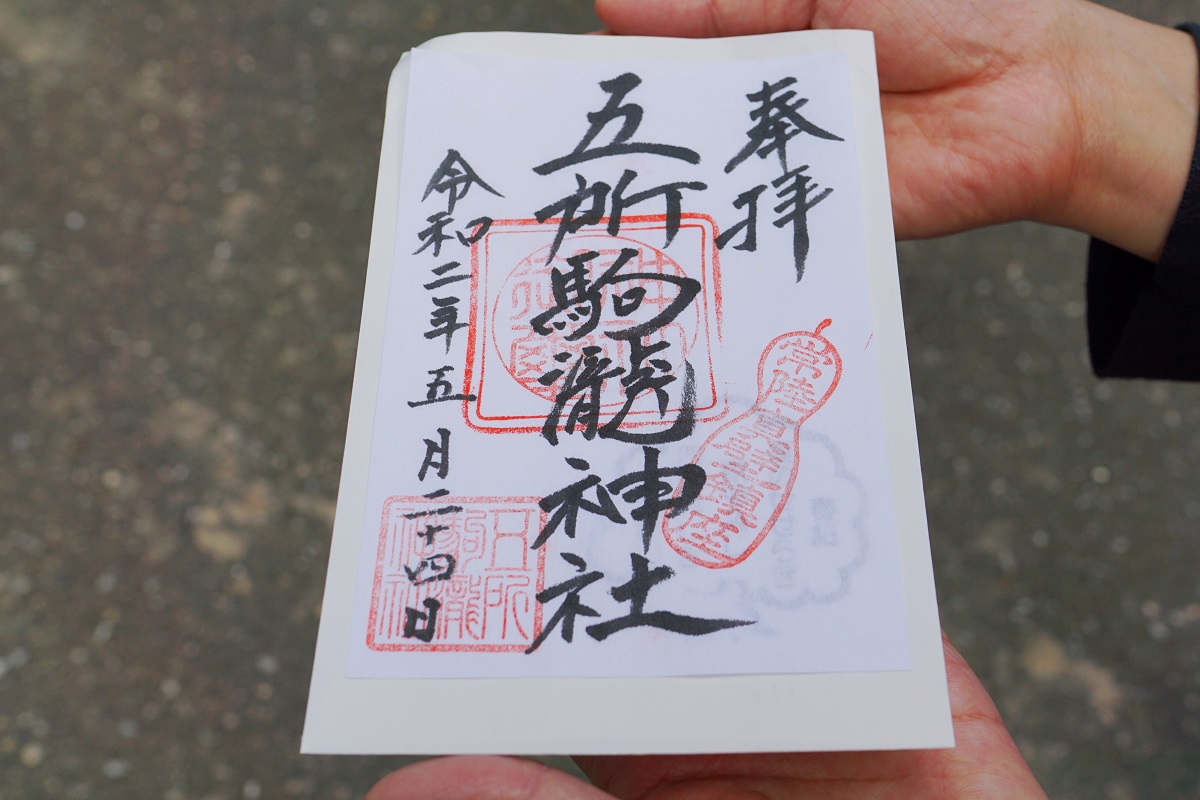 奉拝
常陸真壁鎮座
五所駒瀧神社
令和二年五月二十四日
五所駒瀧神社